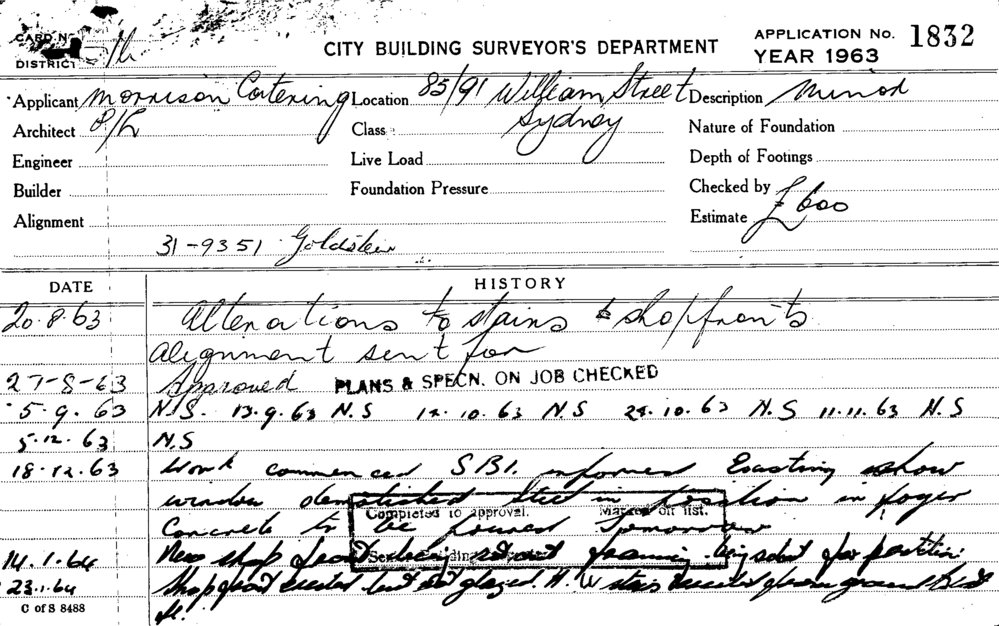 CARD No.
DISTRICT
CITY BUILDING SURVEYOR'S DEPARTMENT
APPLICATION No. 1832
YEAR 1963
Applicant Morrison Catering P/L
Location 85/91 William Street Sydney
Description Minor
Architect
Class
Nature of Foundation
Engineer
Live Load
Depth of Footings
Builder
Foundation Pressure
Checked by
Alignment
Estimate £600
31-9351 Goldstein
DATE HISTORY
20.8.63 Alterations to stairs & shopfronts
alignment sent for
27-8-63 Approved PLANS & SPECN. ON JOB CHECKED
5.9.63 N.S. 13.9.63 N.S 14.10.63 N.S 24.10.63 N.S 11.11.63 N.S
5.12.63 N.S
18.12.63 Work commenced S.B.I. informed Existing show
window demolished steel in position in foyer
Completed to approval. Marked off list.
Concrete to be poured tomorrow
14.1.64 New shop front being set out framing being set out for partition
23.1.64 Shopfront erected but not glazed. H.W stairs erected from ground to 1st
fl.
C of S 8488